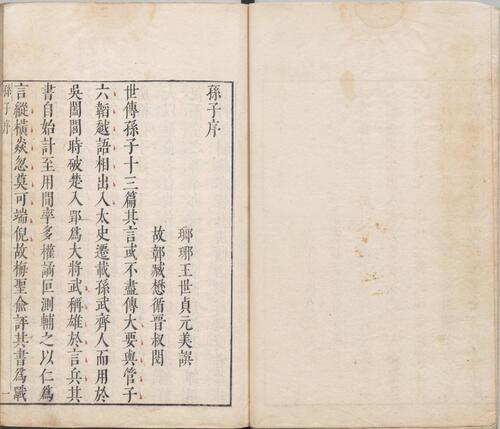 孫子序
瑯琊王世貞元美譔
故鄣臧懋循晉叔閱
世傳孫子十三篇其言或不盡傳大要與管子
六韜越語相出入太史遷載孫武齊人而用於
吳闔閭時破楚入郢爲大將武稱雄於言兵其
書自始計至用間率多權譎叵測輔之以仁爲
言縱橫焱忽莫可端倪故梅聖兪評其書爲戰
孫子序
一